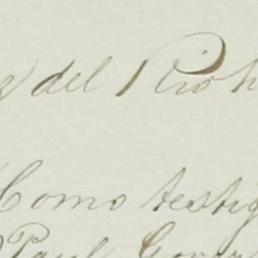 del Rio h
Como testig
Paul Gover